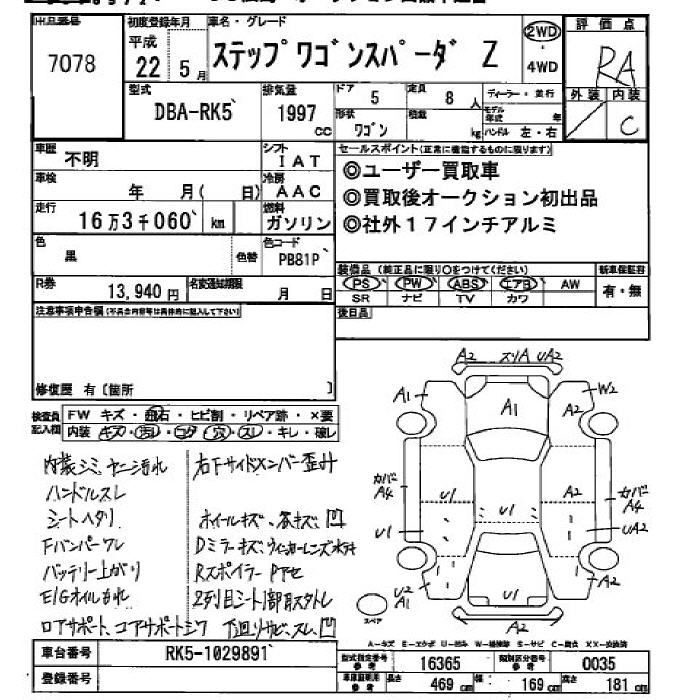 出品番号
7078
初度登録年月
平成
22 5月
車名・グレード
ステップワゴンスパーダ Z
2WD
・
4WD
評価点
RA
外装 内装
C
型式
DBA-RK5
排気量
1997
cc
ドア 5
定員 8人
ディーラー・並行
形状
ワゴン
積載
kg
モデル年式 年
ハンドル 左・右
車歴
不明
シフト
IAT
車検
年 月( 日)
冷房
AAC
走行
16万3千060 km
燃料
ガソリン
色
黒
色替
色コード
PB81P
R券
13,940円
名変通知期限
月 日
セールスポイント(正常に機能するものに限ります)
◎ユーザー買取車
◎買取後オークション初出品
◎社外17インチアルミ
装備品(純正品に限り〇をつけてください)
新車保証書
PS PW ABS エアB AW
有・無
SR ナビ TV カワ
後日品
注意事項申告欄(不具合内容等は具体的に記入して下さい)
修復歴 有〔箇所 〕
検査員
記入欄
FW キズ・飛石・ヒビ割・リペア跡・×要
内装 キズ・汚レ・コゲ・穴・スレ・キレ・破レ
内装シミ、ヤニ汚れ
ハンドルスレ
シートヘタリ
Fバンパーワレ
バッテリー上がり
E/Gオイルもれ
ロアサポート、コアサポートミク
右下サイドメンバー歪み
ホイールキズ、各キズ、凹
Dミラーキズ、ウィンカーレンズ水アカ
Rスポイラー Pアセ
2列目シート1部取スタレ
下廻りサビ、スレ、凹
A2 スリA UA2
A1
W2
A1
A2
カバー
A4
U1
U1
A2
カバー
A4
U1
UA2
U2
A1
U1
A2
A2
スペア
A-キズ E-エクボ U-凹み W-補修跡 S-サビ C-腐食 XX-交換済
車台番号
RK5-1029891
登録番号
型式指定番号
参考
16365
類別区分番号
参考
0035
車庫証明用
参考
長さ
469cm
幅
169cm
高さ
181cm